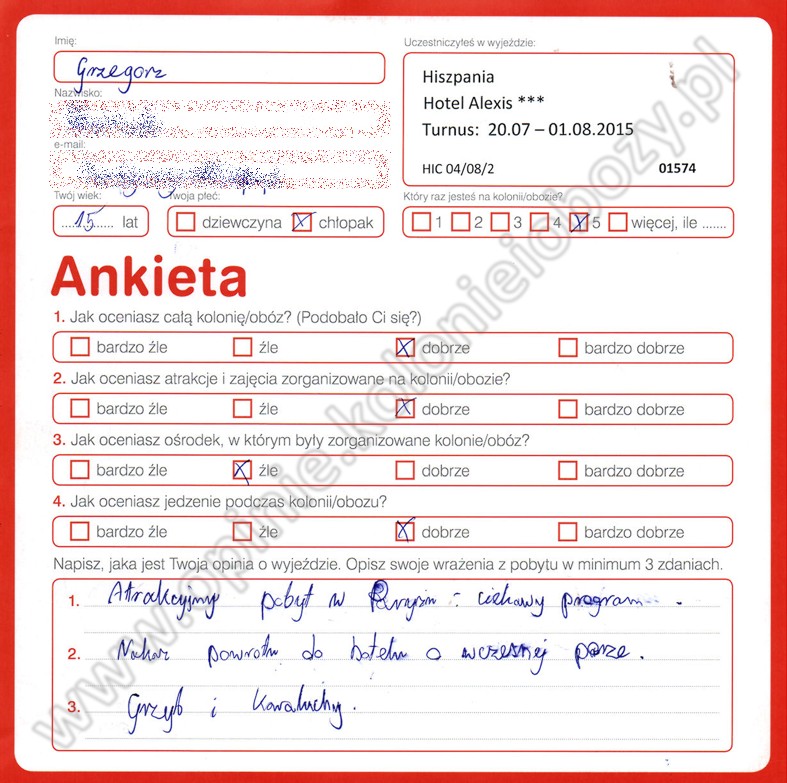 Imię:
Grzegorz
Uczestniczyłeś w wyjeździe:
Hiszpania
Hotel Alexis ***
Turnus: 20.07 – 01.08.2015
HIC 04/08/2 01574
Nazwisko:
e-mail:
Twój wiek:
15 lat
Twoja płeć:
dziewczyna X chłopak
Który raz jesteś na kolonii/obozie?
1 2 3 4 X 5 więcej, ile .......
Ankieta
1. Jak oceniasz całą kolonię/obóz? (Podobało Ci się?)
bardzo źle źle X dobrze bardzo dobrze
2. Jak oceniasz atrakcje i zajęcia zorganizowane na kolonii/obozie?
bardzo źle źle X dobrze bardzo dobrze
3. Jak oceniasz ośrodek, w którym były zorganizowane kolonie/obóz?
bardzo źle X źle dobrze bardzo dobrze
4. Jak oceniasz jedzenie podczas kolonii/obozu?
bardzo źle źle X dobrze bardzo dobrze
Napisz, jaka jest Twoja opinia o wyjeździe. Opisz swoje wrażenia z pobytu w minimum 3 zdaniach.
1. Atrakcyjny pobyt w - ciekawy program.
2. Nakaz powrotu do hotelu o wczesnej porze.
3. Grzyb i Karaluchy.
www.opinie.kolonieiobozy.pl